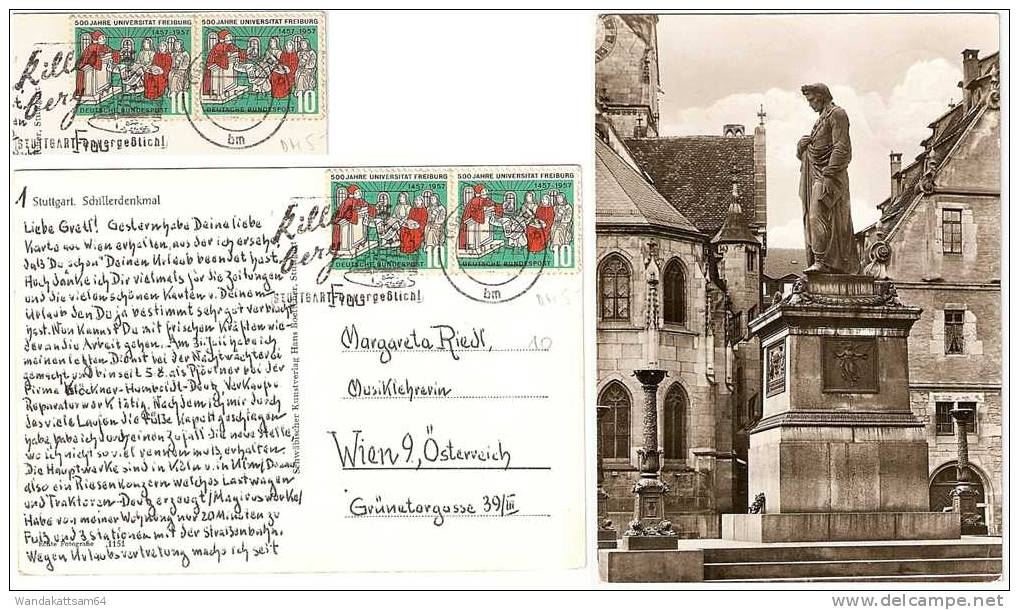 500 JAHRE UNIVERSITÄT FREIBURG 500 JAHRE UNIVERSITÄT FREIBURG
1457-1957 1457-1957
Kille
berg
DEUTSCHE BUNDESPOST 10 DEUTSCHE BUNDESPOST 10
STUTTGART unvergeßlich!
bm
1 Stuttgart. Schillerdenkmal
Liebe Gretl! Gestern habe Deine liebe
Karte aus Wien erhalten, aus der ich ersehe,
daß Du schon Deinen Urlaub beendet hast.
Auch danke ich Dir vielmals für die Zeitungen
und die vielen schönen Karten v. Deinem
Urlaub den Du ja bestimmt sehr gut verbracht
hast. Nun kannst Du mit frischen Kräften wie-
der an die Arbeit gehen. Am habe ich
meinen letzten Dienst bei der Nachtwächterei
gemacht und bin seit 5.8. als Pförtner bei der
Firma Klöckner-Humboldt-Deutz Verkaufs
Reparaturwerk tätig. Nachdem ich mir durch
das viele Laufen die Füße kaputtgeschlagen
habe, habe ich durch einen Zufall die neue Stelle
wo ich nicht so viel rennen muß, erhalten.
Die Hauptwerke sind in Köln u. in Ulm/Donau
also ein Riesenkonzern welches Lastwagen
und Traktoren-Deutz erzeugt/Magiruswerke/
Habe von meiner Wohnung nur 20 Minuten zu
Fuß und 3 Stationen mit der Straßenbahn.
Echte Fotografie 1151
Wegen Urlaubsvertretung mache ich seit
Schwäbischer Kunstverlag Hans Boettcher, Stuttgart
500 JAHRE UNIVERSITÄT FREIBURG 500 JAHRE UNIVERSITÄT FREIBURG
1457-1957 1457-1957
Kille
berg
DEUTSCHE BUNDESPOST 10 DEUTSCHE BUNDESPOST 10
STUTTGART unvergeßlich!
bm
Margareta Riedl,
10
Musiklehrerin
Wien 9, Österreich
Grünetorgasse 39/III
Wandakattsam64
http://www.delcampe.net